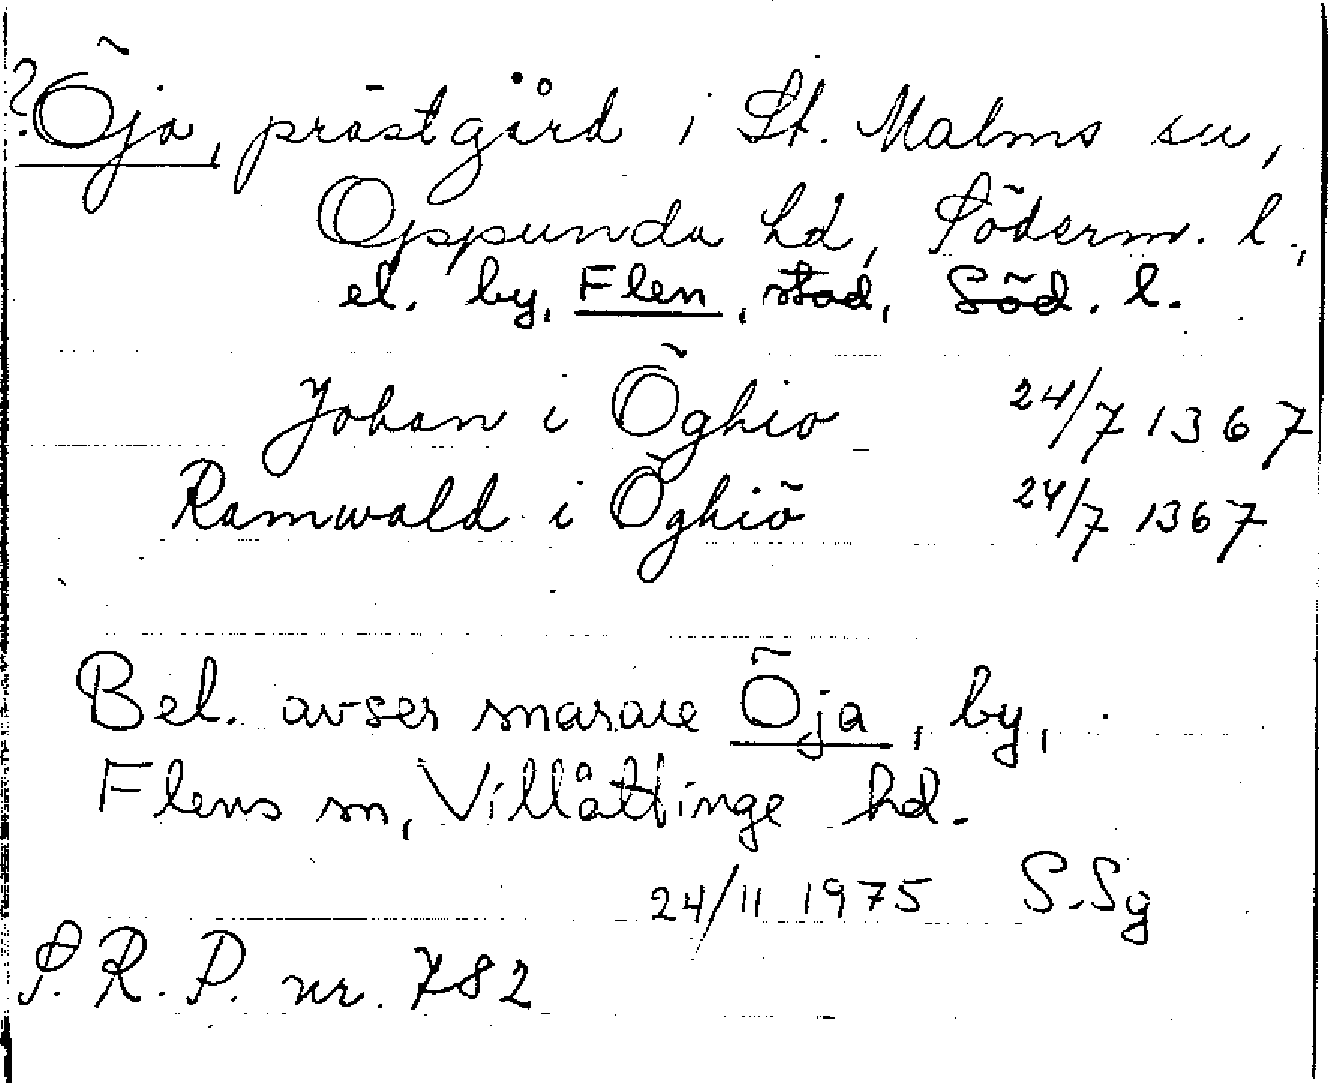 ? Öja, prästgård i St. Malms sn,
Oppunda hd, Söderm. l.,
el. by, Flen, stad, Söd. l.
Johan i Öghio 24/7 1367
Ramwald i Öghiö 24/7 1367
Bel. avser snarare Öja, by,
Flens sn, Villåttinge hd.
24/11 1975 S.Sg
S.R.P. nr. 782